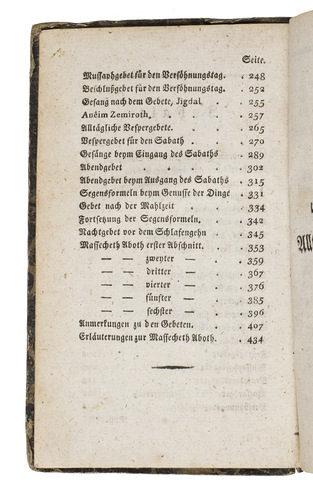 Seite.
Mussaphgebet für den Versöhnungstag. . 248
Beschlußgebet für den Versöhnungstag. . 252
Gesang nach dem Gebete, Jigdal. . 255
Anêim Zemiroth. . . . 257
Alltägliche Vespergebete. . . 265
Vespergebet für den Sabath . . 270
Gesänge beym Eingang des Sabaths . 289
Abendgebet . . . . 302
Abendgebet beym Ausgang des Sabaths . 315
Segensformeln beym Genusse der Dinge . 331
Gebet nach der Mahlzeit . . 334
Fortsetzung der Segensformeln. . . 342
Nachtgebet vor dem Schlafengehn . 345
Massecheth Aboth erster Abschnitt. . . 353
— — zweyter — . 359
— — dritter — . 367
— — vierter — . 376
— — fünfter — . 385
— — sechster — . 396
Anmerkungen zu den Gebeten. . . 407
Erläuterungen zur Massecheth Aboth. . 434